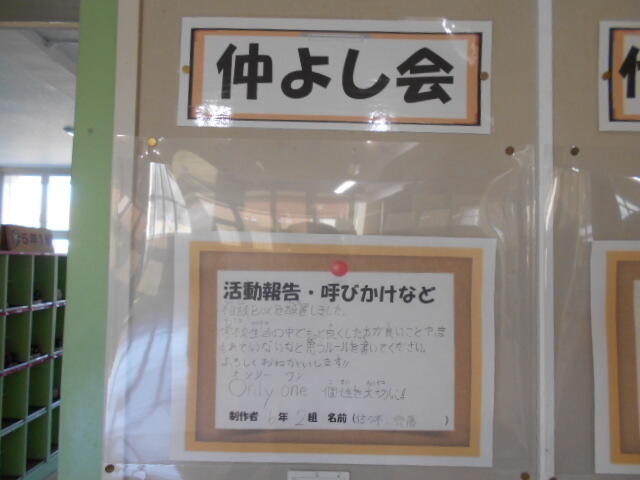 仲よし会
活動報告・呼びかけなど
相談Boxを設置しました。
学校生活の中でもっと良くした方が良いことや守
られていないなと思うルールを書いてください。
よろしくおねがいします!!
オンリー ワン
Only one 個性を大切に!
制作者 6年 2組 名前( )